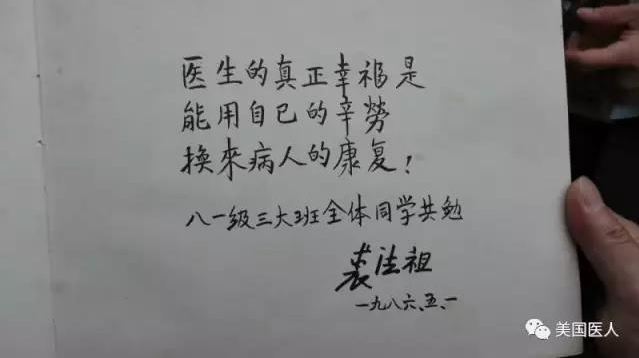 医生的真正幸福是
能用自己的辛勞
换來病人的康复！
八一级三大班全体同学共勉
裘法祖
一九八六、五、一
美国医人